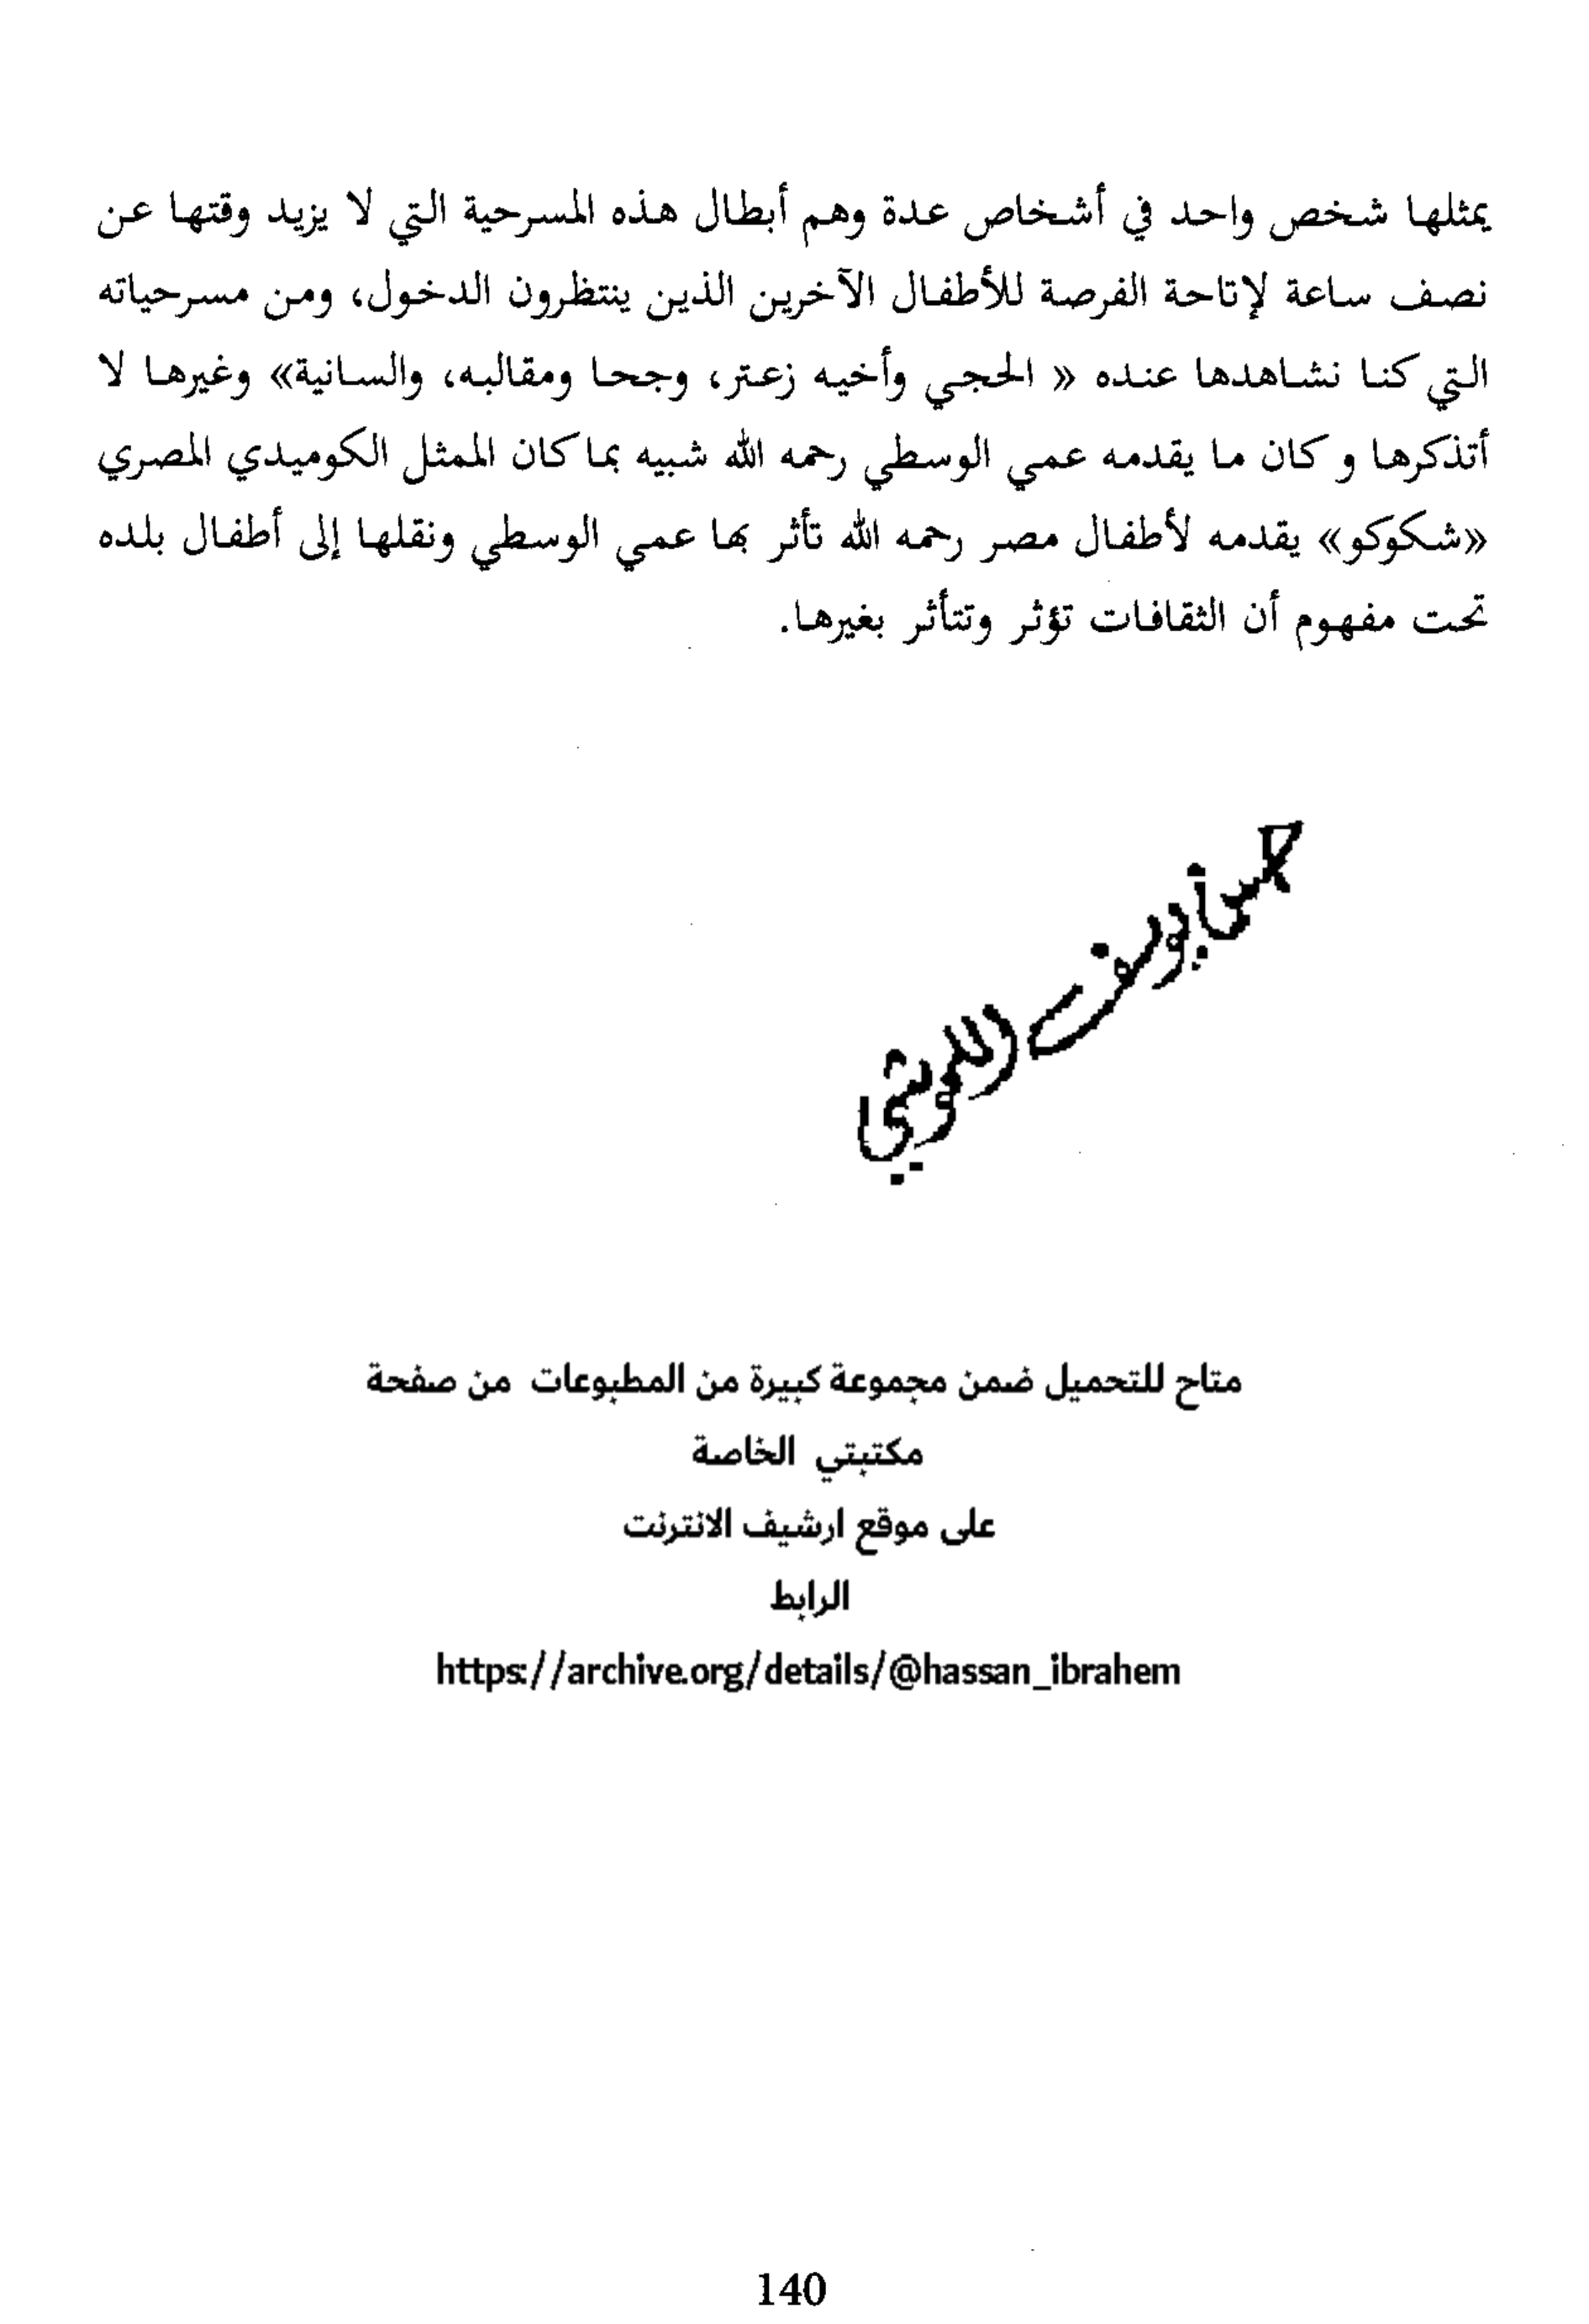 يمثلها شخص واحد في أشخاص عدة وهم أبطال هذه المسرحية التي لا يزيد وقتها عن
نصف ساعة لإتاحة الفرصة للأطفال الآخرين الذين ينتظرون الدخول، ومن مسرحياته
التي كنا نشاهدها عنده « الحجي وأخيه زعتر، وجحا ومقالبه، والسانية» وغيرها لا
أتذكرها و كان ما يقدمه عمي الوسطي رحمه الله شبيه بما كان الممثل الكوميدي المصري
«شكوكو» يقدمه لأطفال مصر رحمه الله تأثر بها عمي الوسطي ونقلها إلى أطفال بلده
تحت مفهوم أن الثقافات تؤثر وتتأثر بغيرها.
متاح للتحميل ضمن مجموعة كبيرة من المطبوعات من صفحة
مكتبتي الخاصة
على موقع ارشيف الانترنت
الرابط
https://archive.org/details/@hassan_ibrahem
140